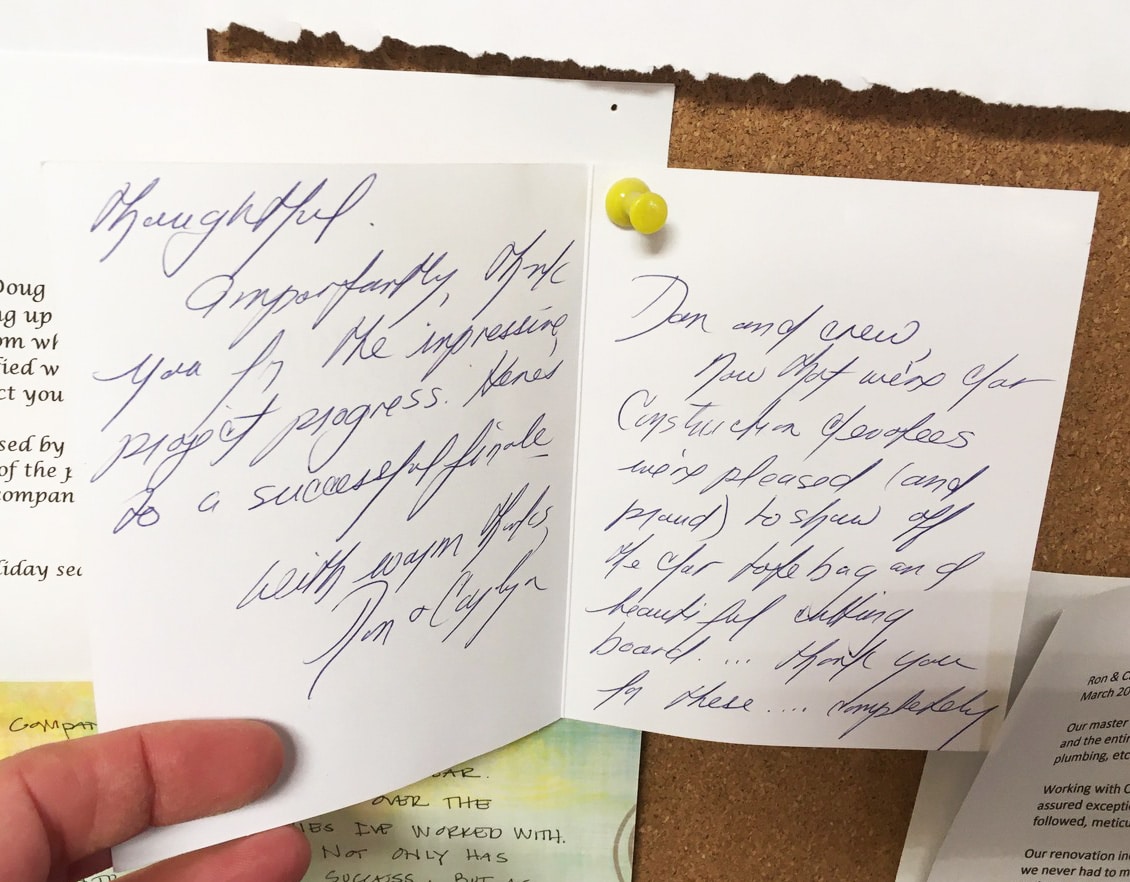 Dan and crew,
Now that we're Clar
Construction devotees
we're pleased (and
proud) to show off
the Clar tote bag and
beautiful cutting
board.... thank you
for these.... completely
thoughtful.
Importantly, thank
you for the impressive,
project progress. Here's
to a successful finale
with warm thanks,
Ron &
Doug
up
om
w
ct you
sed by
of the
compan
iday
OVER THE
I'VE WORKED WITH.
NOT ONLY HAS
SUCCESS, BUT
Ron & C
March 20
Our master
and the entir
plumbing, etc
Working with C
assured excepti
followed, meticu
Our renovation in
we never had to m